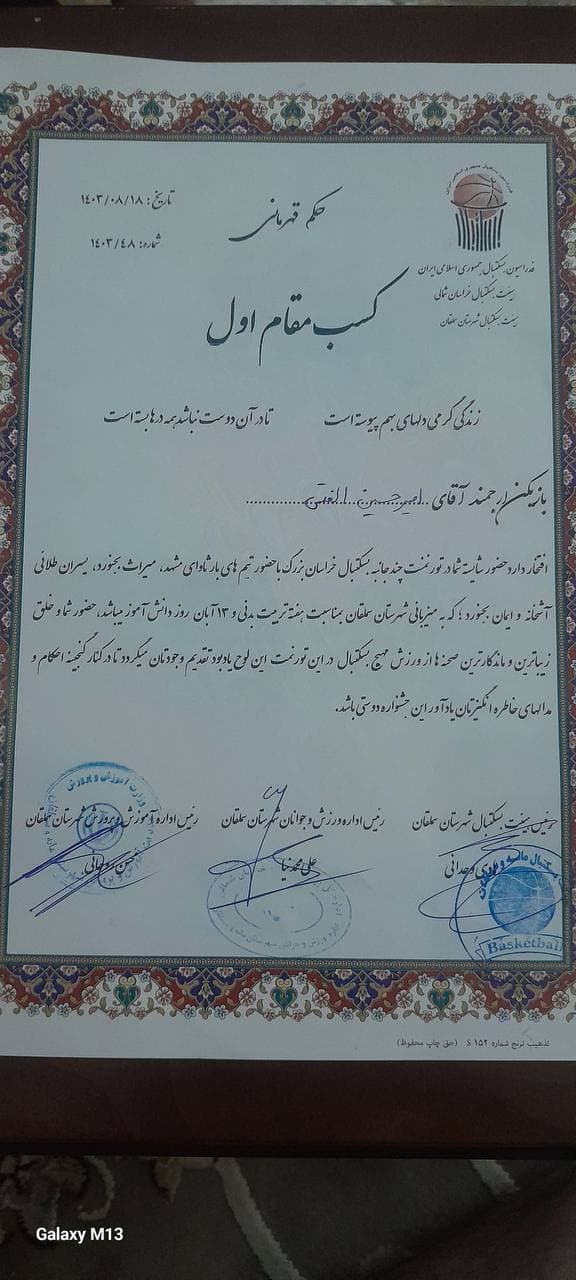 تاریخ: ۱۴۰۳/۰۸/۱۸
شماره: ۱۴۰۳/۴۸
حکم قهرمانی
فدراسیون بسکتبال جمهوری اسلامی ایران
هیئت بسکتبال خراسان شمالی
هیئت بسکتبال شهرستان سملقان
کسب مقام اول
زندگی گرمی دلهای بهم پیوسته است تا در آن دوست نباشد همه درها بسته است
بازیکن ارجمند آقای امیرحسین
افتخار دارد حضور شایسته شما در تورنمنت چند جانبه بسکتبال خراسان بزرگ با حضور تیم های بارثاوای مشهد، میراث بجنورد، پسران طلائی
آشخانه و ایمان بجنورد؛ که به میزبانی شهرستان سملقان بمناسبت هفته تربیت بدنی و ۱۳ آبان روز دانش آموز میباشد، حضور شما و خلق
زیباترین و ماندگارترین صحنه ها از ورزش مهیج بسکتبال در این تورنمنت این لوح یادبود تقدیم وجودتان میگردد تا در کنار گنجینه احکام و
مدالهای خاطره انگیزتان یادآور این جشنواره دوستی باشد.
رئیس هیئت بسکتبال شهرستان سملقان
رئیس اداره ورزش و جوانان شهرستان سملقان
رئیس اداره آموزش و پرورش شهرستان سملقان
وحدانی
علی محمدنیا
حسن
وزارت آموزش و پرورش
Basketball
تذهیب ترنج شماره S ۱۵۲ (حق چاپ محفوظ)
Galaxy M13